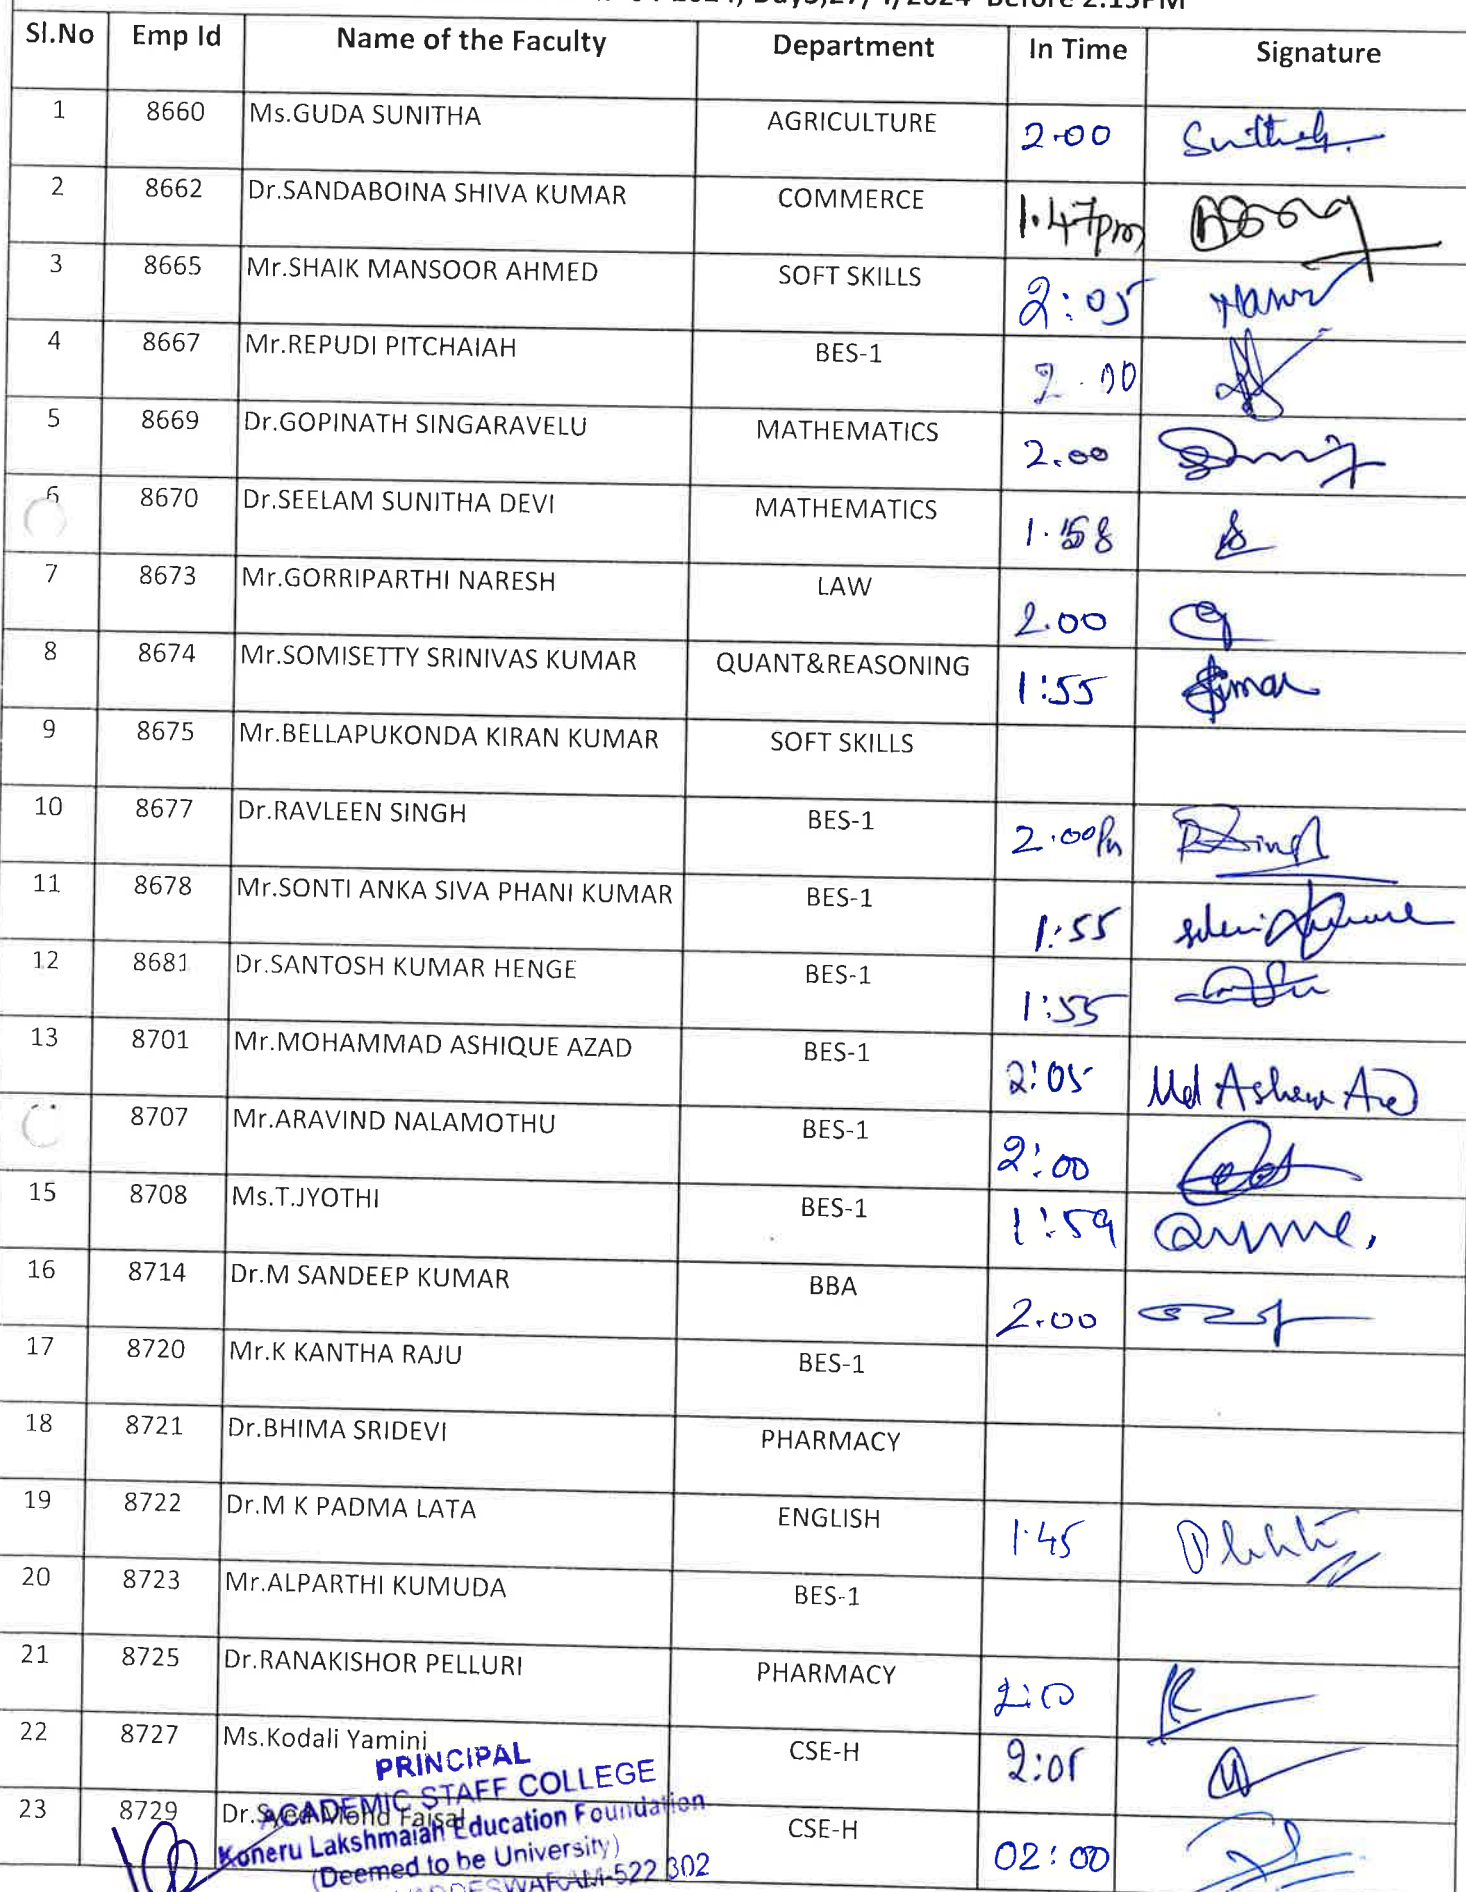 2024, Day5,27/4/2024 Before 2.15PM
Sl.No Emp Id Name of the Faculty Department In Time Signature
1 8660 Ms.GUDA SUNITHA AGRICULTURE 2.00
2 8662 Dr.SANDABOINA SHIVA KUMAR COMMERCE 1.47pm
3 8665 Mr.SHAIK MANSOOR AHMED SOFT SKILLS 2:05
4 8667 Mr.REPUDI PITCHAIAH BES-1 2.00
5 8669 Dr.GOPINATH SINGARAVELU MATHEMATICS 2.00
6 8670 Dr.SEELAM SUNITHA DEVI MATHEMATICS 1.58
7 8673 Mr.GORRIPARTHI NARESH LAW 2.00
8 8674 Mr.SOMISETTY SRINIVAS KUMAR QUANT&REASONING 1:55
9 8675 Mr.BELLAPUKONDA KIRAN KUMAR SOFT SKILLS
10 8677 Dr.RAVLEEN SINGH BES-1 2.00Pm
11 8678 Mr.SONTI ANKA SIVA PHANI KUMAR BES-1 1:55
12 8681 Dr.SANTOSH KUMAR HENGE BES-1 1:55
13 8701 Mr.MOHAMMAD ASHIQUE AZAD BES-1 2:05 Md
8707 Mr.ARAVIND NALAMOTHU BES-1 2:00
15 8708 Ms.T.JYOTHI BES-1 1:59
16 8714 Dr.M SANDEEP KUMAR BBA 2.00
17 8720 Mr.K KANTHA RAJU BES-1
18 8721 Dr.BHIMA SRIDEVI PHARMACY
19 8722 Dr.M K PADMA LATA ENGLISH 1.45
20 8723 Mr.ALPARTHI KUMUDA BES-1
21 8725 Dr.RANAKISHOR PELLURI PHARMACY
22 8727 Ms.Kodali Yamini CSE-H 2:01
23 8729 Dr.Syed Mohd Faisal CSE-H 02:00
PRINCIPAL
ACADEMIC STAFF COLLEGE
Koneru Lakshmaiah Education Foundation
(Deemed to be University)
522 302